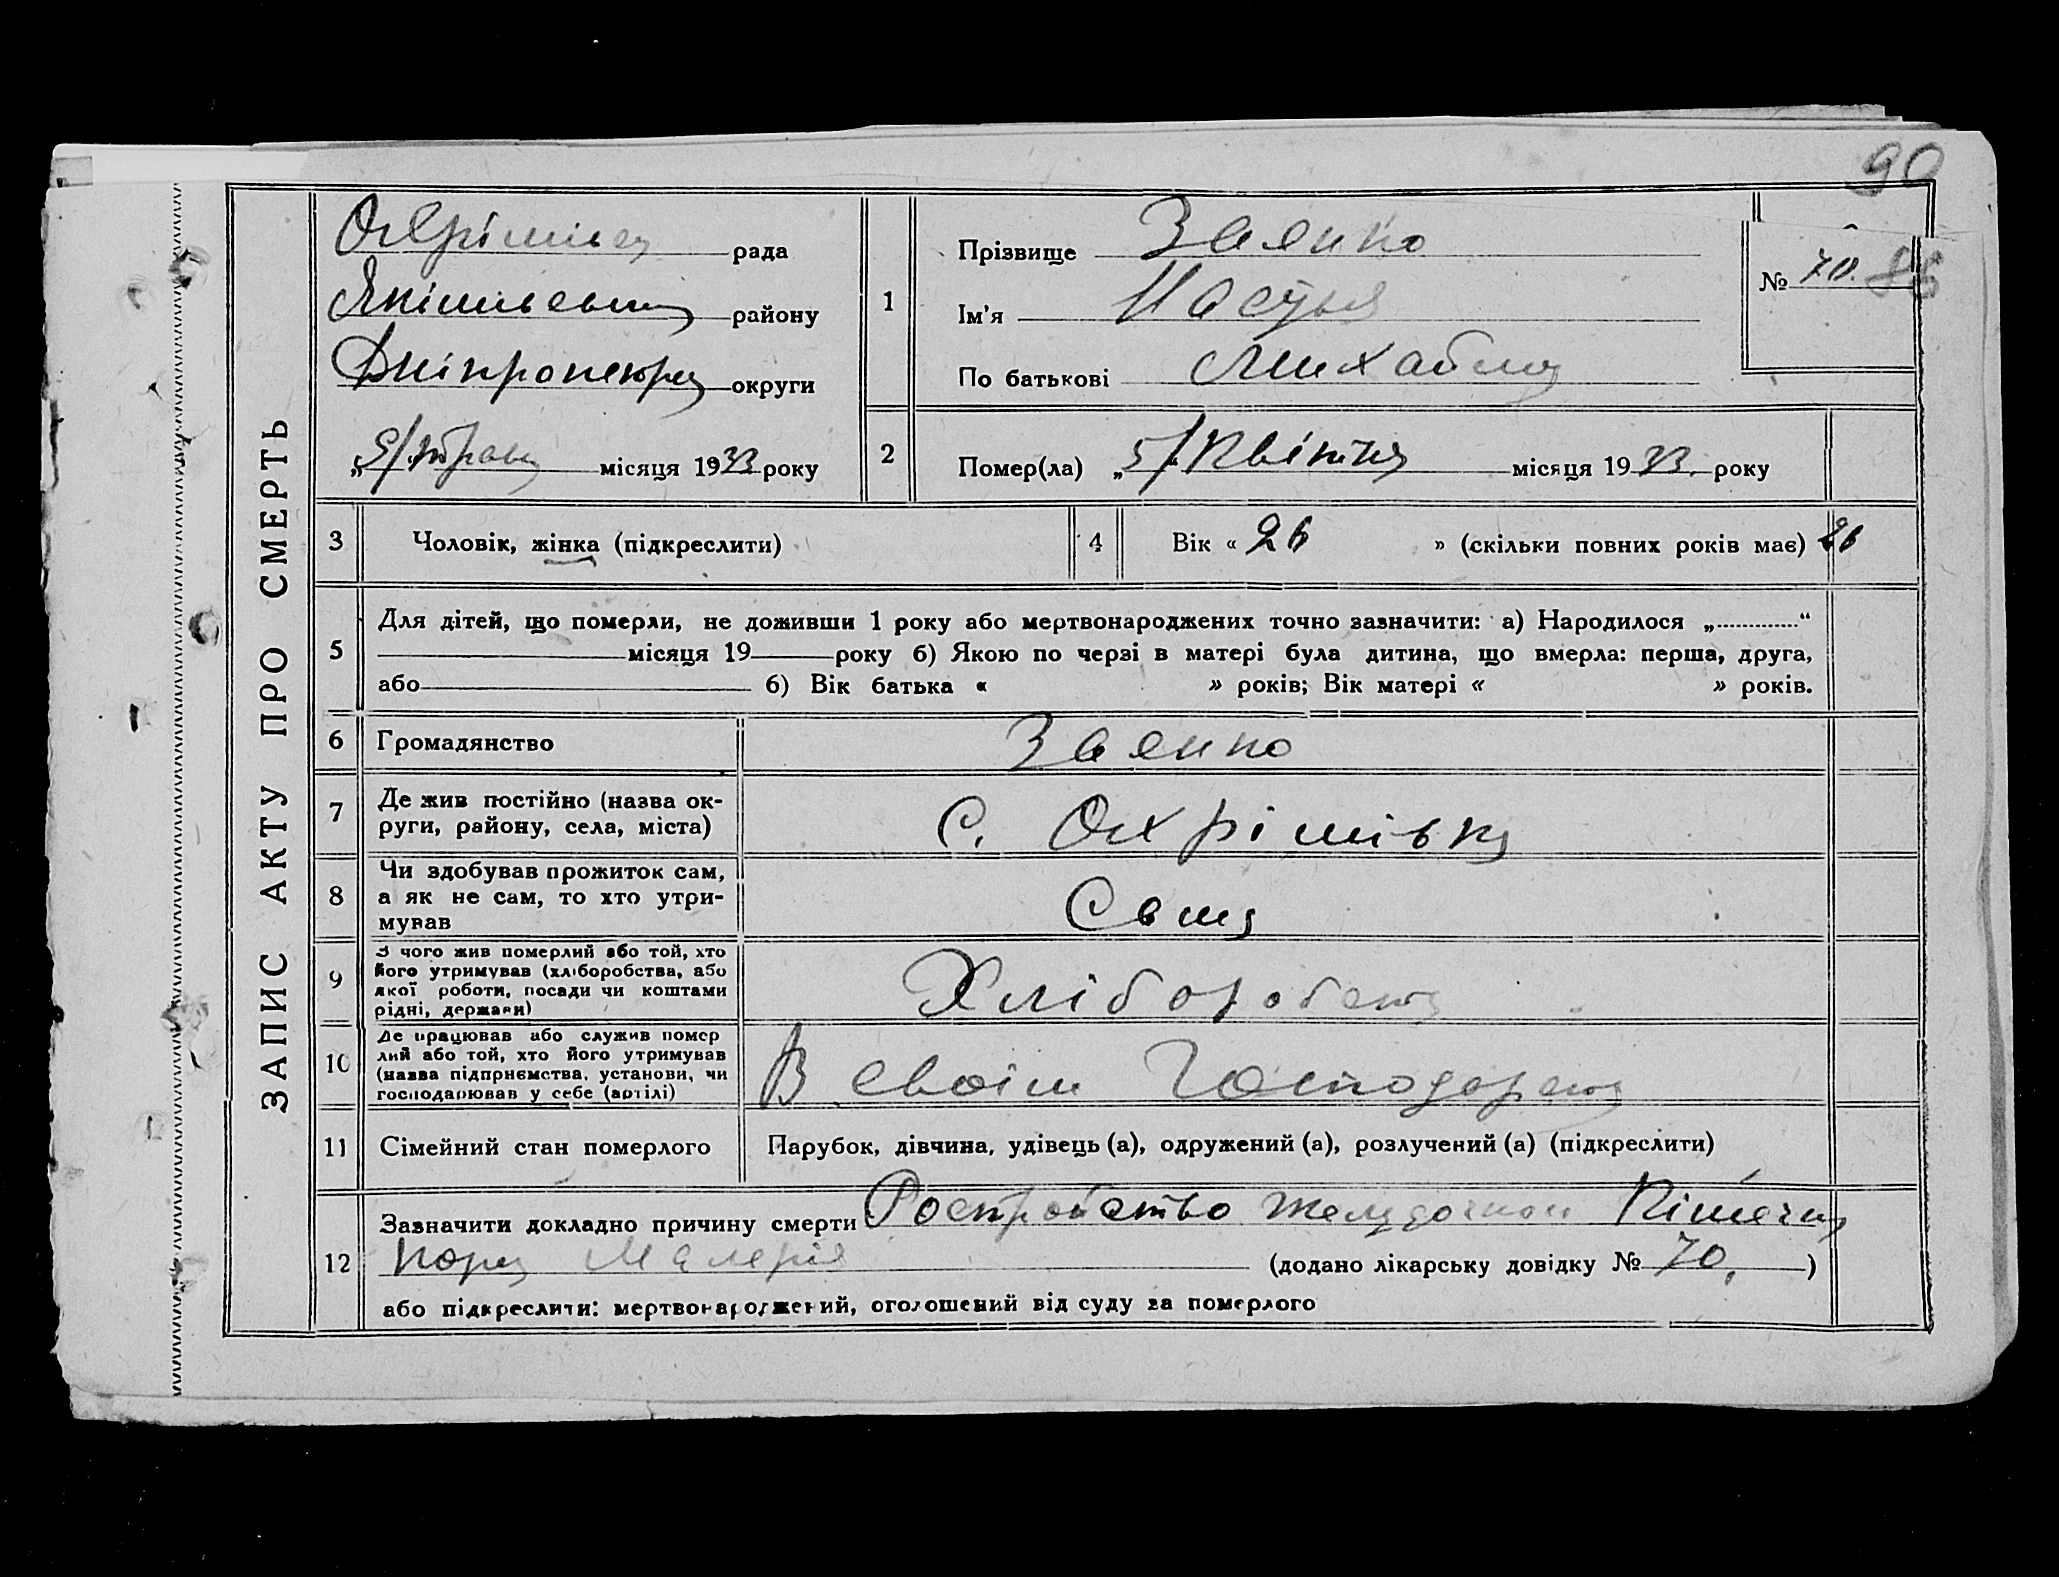 90
ЗАПИС АКТУ ПРО СМЕРТЬ
рада
району
Дніпропетр округи
5/ трав місяця 1933 року
1
Прізвище Заянко
Ім'я Настья
По батькові Михайл
№ 70. 86
2
Помер(ла) „5/ Квітня місяця 1933. року
3 Чоловік, жінка (підкреслити)
4 Вік « 26 » (скільки повних років має) 26
5 Для дітей, що померли, не доживши 1 року або мертвонароджених точно зазначити: а) Народилося „............“
місяця 19 року б) Якою по черзі в матері була дитина, що вмерла: перша, друга,
або б) Вік батька « » років; Вік матері « » років.
6 Громадянство Заянко
7 Де жив постійно (назва ок-
руги, району, села, міста) С. Охрімівка
8 Чи здобував прожиток сам,
а як не сам, то хто утри-
мував Сам
9 З чого жив померлий або той, хто
його утримував (хліборобства, або
якої роботи, посади чи коштами
рідні, держави) Хлібороб
10 Де працював або служив помер
лий або той, хто його утримував
(назва підприємства, установи, чи
господарював у себе (артілі) В своім
11 Сімейний стан померлого Парубок, дівчина, удівець (а), одружений (а), розлучений (а) (підкреслити)
12 Зазначити докладно причину смерти Ростройство
Малерія (додано лікарську довідку № 70. )
або підкреслити: мертвонароджений, оголошений від суду за померлого